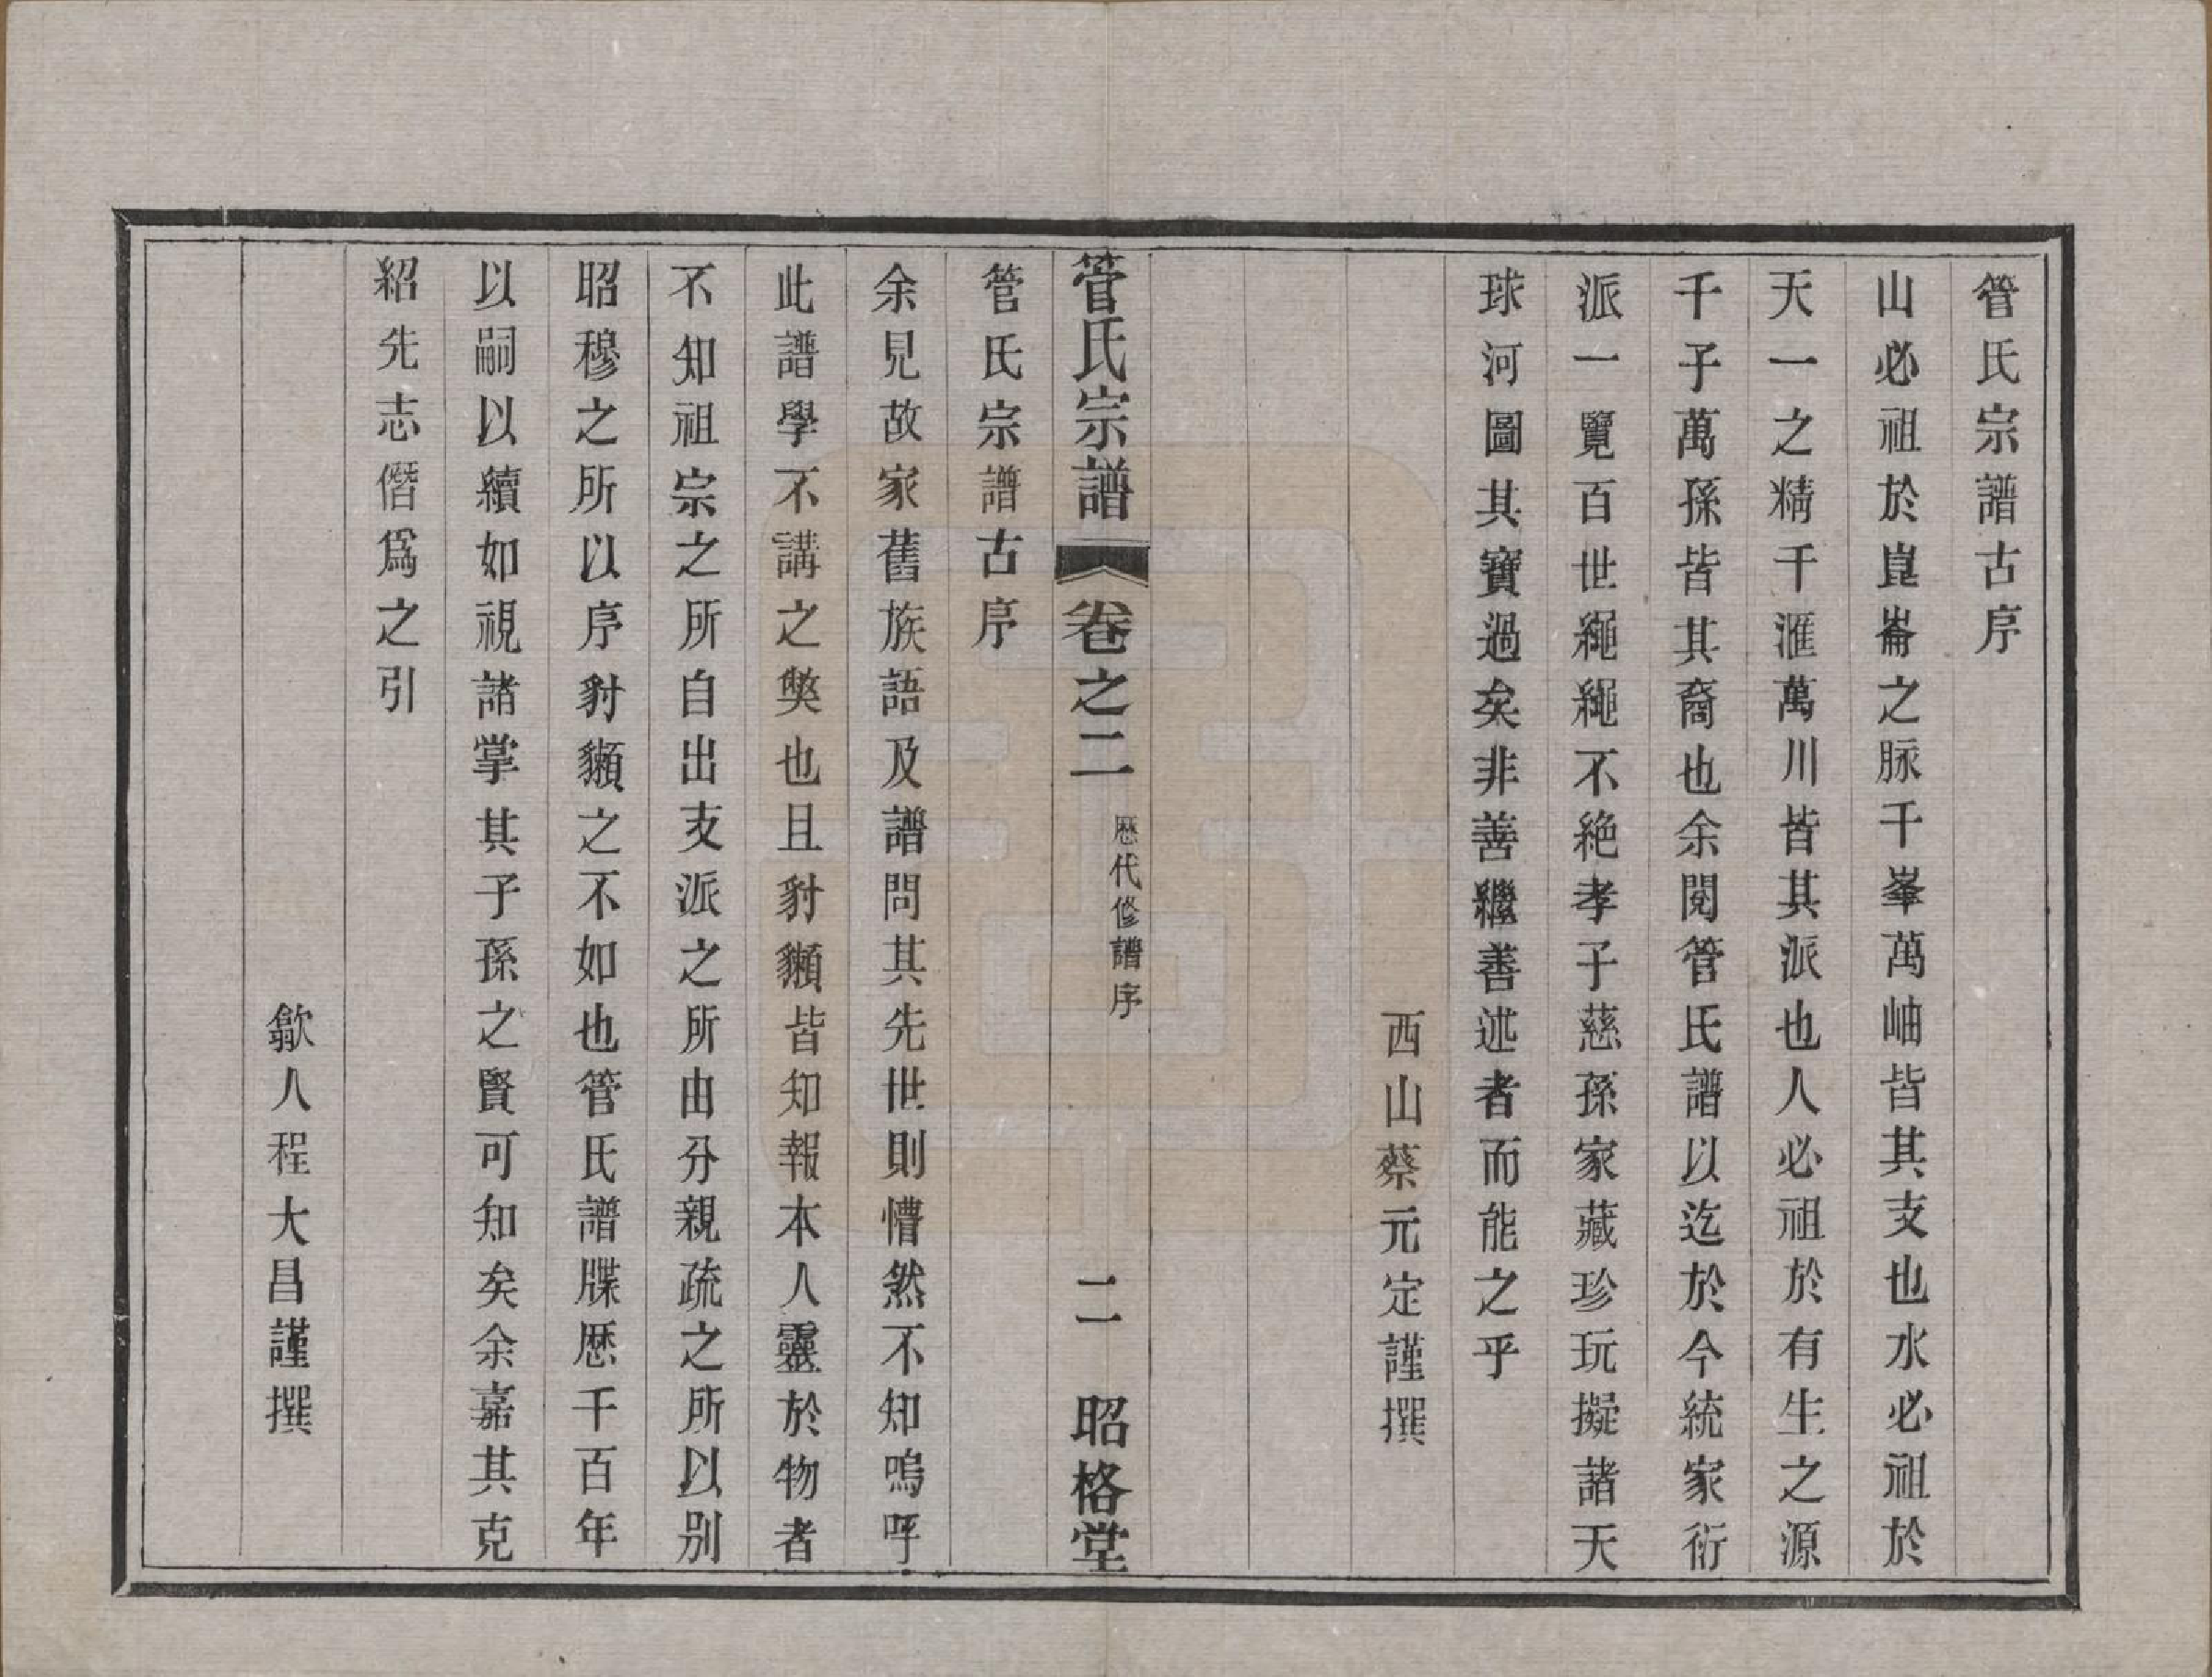 管氏宗譜古序
山必祖於崑崙之脉千峯萬岫皆其支也水必祖於
天一之精千滙萬川皆其派也人必祖於有生之源
千子萬孫皆其裔也余閱管氏譜以迄於今統家衍
派一覽百世繩繩不絶孝子慈孫家藏珍玩擬諸天
球河圖其寶過矣非善繼善述者而能之乎
西山蔡元定謹撰
管氏宗譜 卷之二 歷代修譜序 二 昭格堂
管氏宗譜古序
余見故家舊族語及譜問其先世則懵然不知嗚呼
此譜學不講之獘也且豺獺皆知報本人靈於物者
不知祖宗之所自出支派之所由分親疏之所以别
昭穆之所以序豺獺之不如也管氏譜牒歷千百年
以嗣以續如視諸掌其子孫之賢可知矣余嘉其克
紹先志僭爲之引
歙人程大昌謹撰